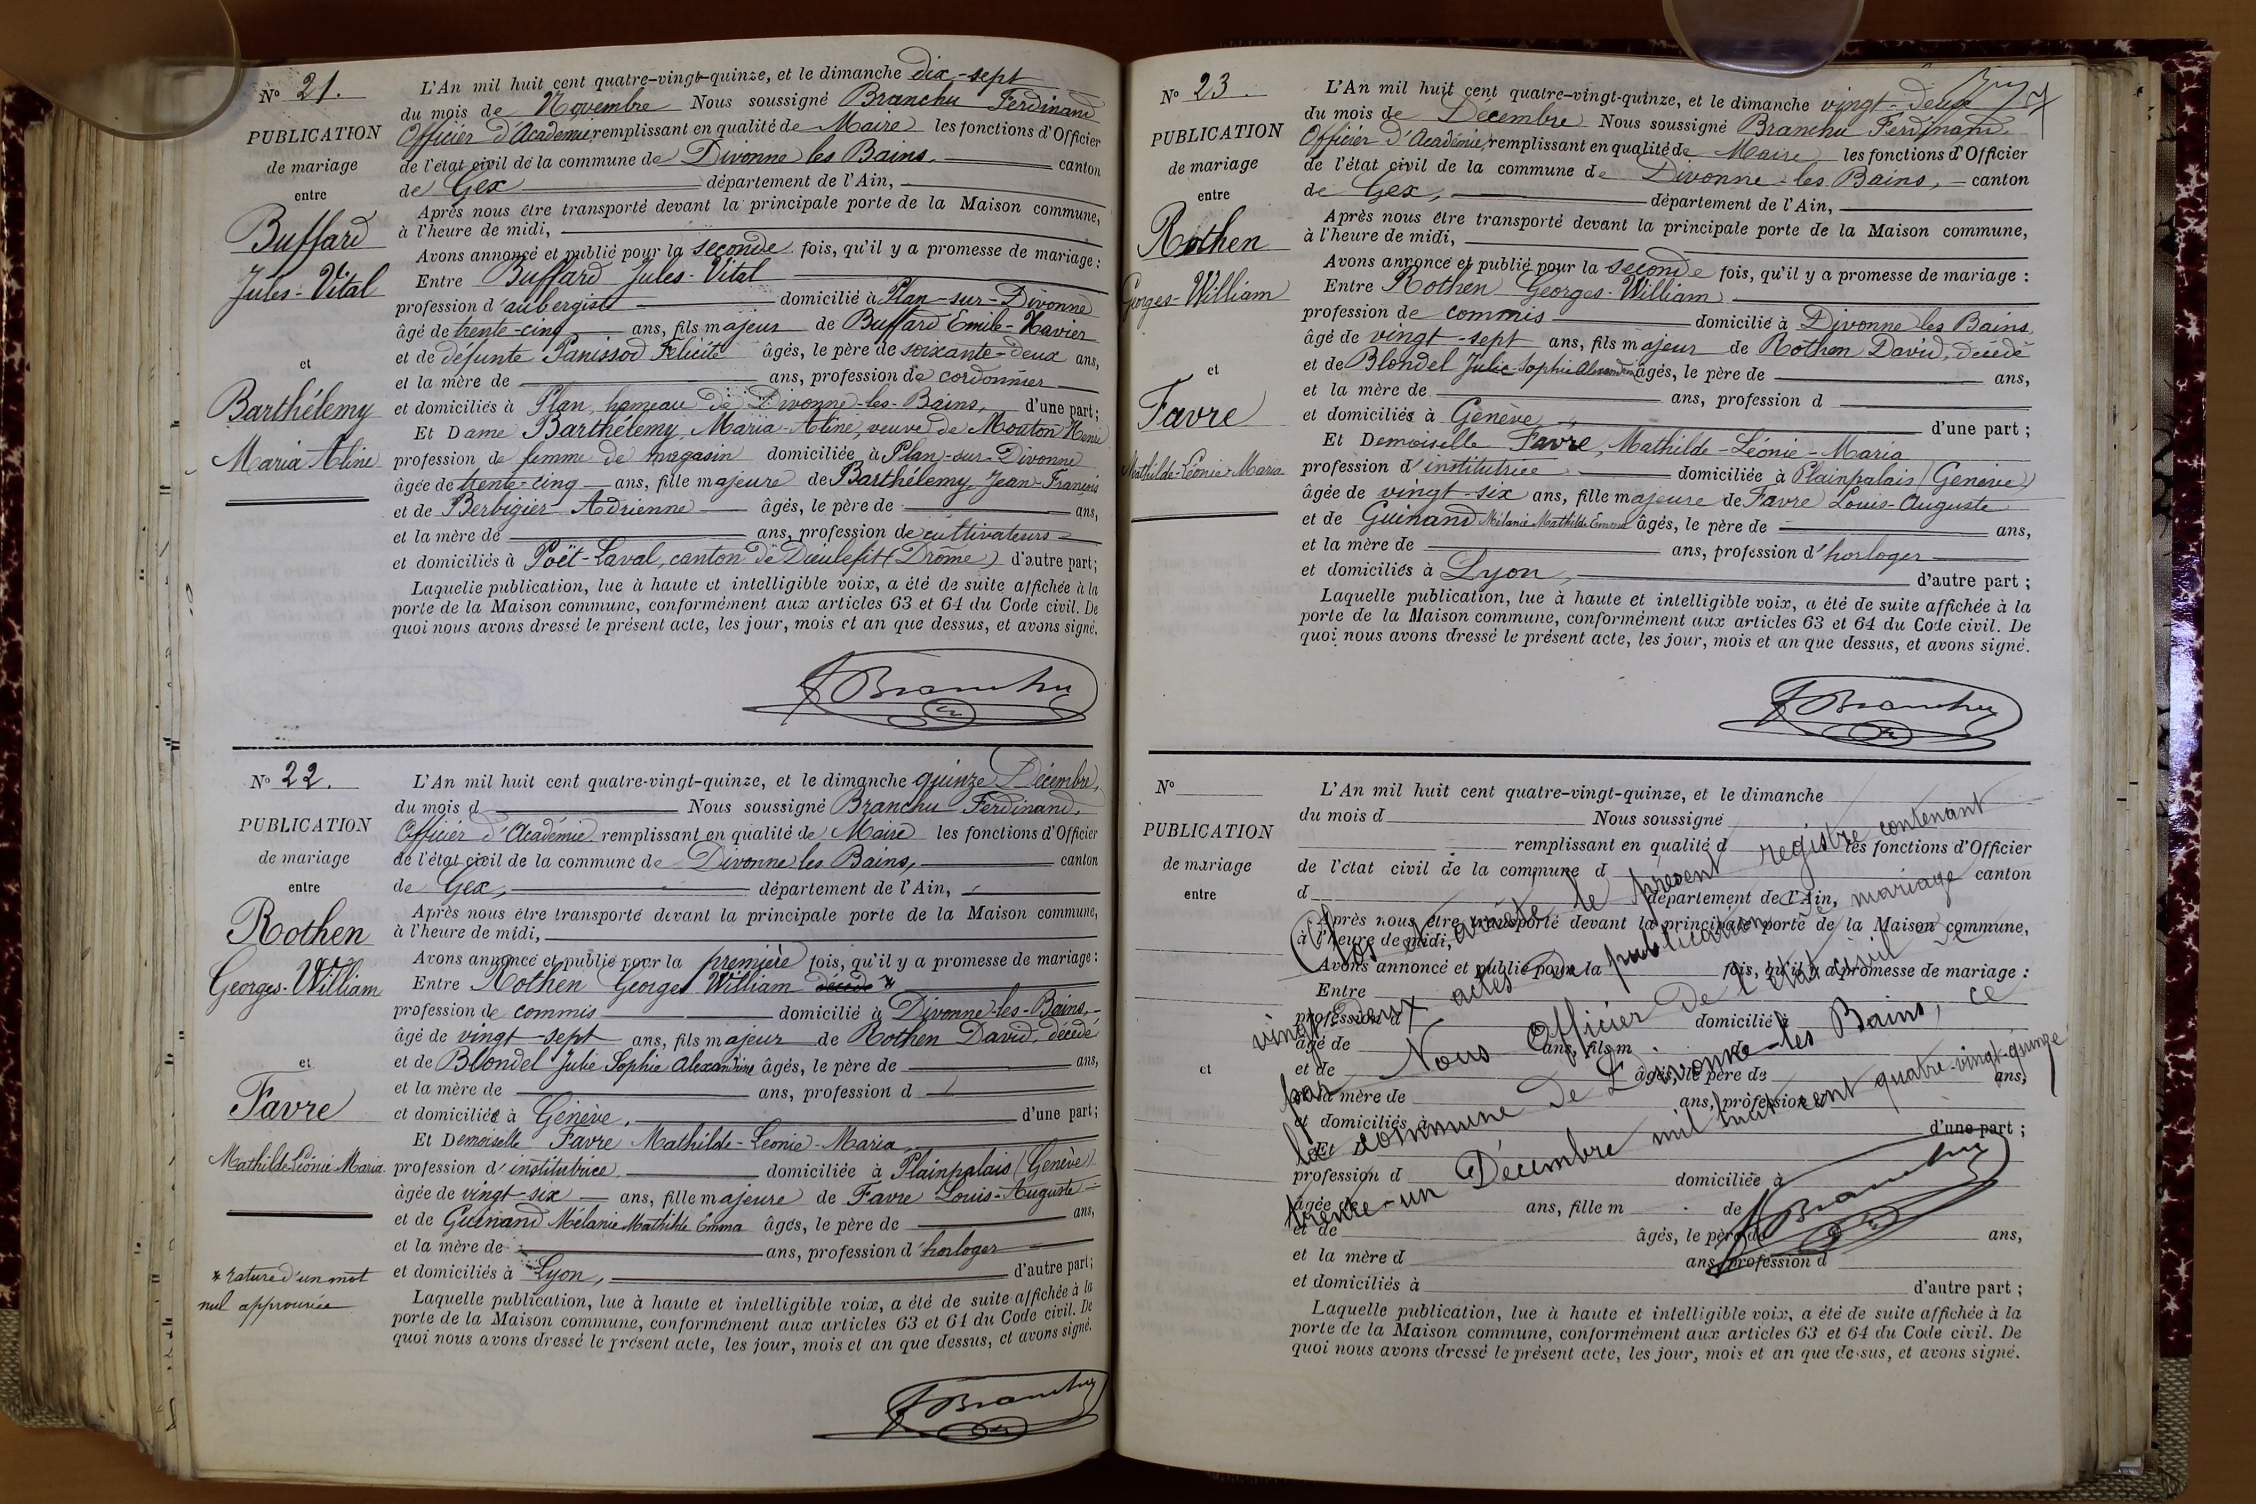 N° 21.
PUBLICATION
de mariage
entre
Buffard
Jules-Vital
et
Barthélemy
Maria Aline
L'An mil huit cent quatre-vingt-quinze, et le dimanche dix-sept
du mois de Novembre Nous soussigné Branchu Ferdinand
Officier d'Academie remplissant en qualité de Maire les fonctions d'Officier
de l'état civil de la commune de Divonne les Bains, canton
de Gex département de l'Ain,
Après nous être transporté devant la principale porte de la Maison commune,
à l'heure de midi,
Avons annoncé et publié pour la seconde fois, qu'il y a promesse de mariage :
Entre Buffard Jules-Vital
profession d'aubergiste domicilié à Plan-sur-Divonne
âgé de trente-cinq ans, fils majeur de Buffard Emile-Xavier
et de défunte Panissod Félicité âgés, le père de soixante-deux ans,
et la mère de ans, profession de cordonnier
et domiciliés à Plan, hameau de Divonne-les-Bains, d'une part ;
Et Dame Barthélemy, Maria-Aline, veuve de Mouton Henri
profession de femme de magasin domiciliée à Plan-sur-Divonne
âgée de trente-cinq ans, fille majeure de Barthélemy Jean-François
et de Berbigier Adrienne âgés, le père de ans,
et la mère de ans, profession de cultivateurs
et domiciliés à Poët-Laval, canton de Dieulefit (Drôme) d'autre part ;
Laquelle publication, lue à haute et intelligible voix, a été de suite affichée à la
porte de la Maison commune, conformément aux articles 63 et 64 du Code civil. De
quoi nous avons dressé le présent acte, les jour, mois et an que dessus, et avons signé.
F Branchu
N° 22.
PUBLICATION
de mariage
entre
Rothen
Georges-William
et
Favre
Mathilde-Léonie-Maria
* rature d'un mot
nul approuvée
L'An mil huit cent quatre-vingt-quinze, et le dimanche quinze Décembre,
du mois d Nous soussigné Branchu Ferdinand,
Officier d'Académie remplissant en qualité de Maire les fonctions d'Officier
de l'état civil de la commune de Divonne les Bains, canton
de Gex, département de l'Ain,
Après nous être transporté devant la principale porte de la Maison commune,
à l'heure de midi,
Avons annoncé et publié pour la première fois, qu'il y a promesse de mariage :
Entre Rothen Georges William décédé *
profession de commis domicilié à Divonne-les-Bains,
âgé de vingt-sept ans, fils majeur de Rothen David, décédé
et de Blondel Julie Sophie Alexandrine âgés, le père de ans,
et la mère de ans, profession d
et domiciliés à Genève, d'une part ;
Et Demoiselle Favre Mathilde-Léonie-Maria
profession d'institutrice domiciliée à Plainpalais (Genève)
âgée de vingt-six ans, fille majeure de Favre Louis-Auguste
et de Guinand Mélanie Mathilde Emma âgés, le père de ans,
et la mère de ans, profession d'horloger
et domiciliés à Lyon, d'autre part ;
Laquelle publication, lue à haute et intelligible voix, a été de suite affichée à la
porte de la Maison commune, conformément aux articles 63 et 64 du Code civil. De
quoi nous avons dressé le présent acte, les jour, mois et an que dessus, et avons signé.
F Branchu
N° 23.
PUBLICATION
de mariage
entre
Rothen
Georges-William
et
Favre
Mathilde-Léonie-Maria
L'An mil huit cent quatre-vingt-quinze, et le dimanche vingt-deux
du mois de Décembre Nous soussigné Branchu Ferdinand,
Officier d'Académie, remplissant en qualité de Maire les fonctions d'Officier
de l'état civil de la commune de Divonne-les Bains, canton
de Gex, département de l'Ain,
Après nous être transporté devant la principale porte de la Maison commune,
à l'heure de midi,
Avons annoncé et publié pour la seconde fois, qu'il y a promesse de mariage :
Entre Rothen Georges-William
profession de commis domicilié à Divonne les Bains
âgé de vingt-sept ans, fils majeur de Rothen David, décédé
et de Blondel Julie-Sophie Alexandrine âgés, le père de ans,
et la mère de ans, profession d
et domiciliés à Genève, d'une part ;
Et Demoiselle Favre, Mathilde-Léonie-Maria
profession d'institutrice domiciliée à Plainpalais (Genève)
âgée de vingt-six ans, fille majeure de Favre Louis-Auguste
et de Guinand Mélanie Mathilde Emma âgés, le père de ans,
et la mère de ans, profession d'horloger
et domiciliés à Lyon, d'autre part ;
Laquelle publication, lue à haute et intelligible voix, a été de suite affichée à la
porte de la Maison commune, conformément aux articles 63 et 64 du Code civil. De
quoi nous avons dressé le présent acte, les jour, mois et an que dessus, et avons signé.
F Branchu
N°
PUBLICATION
de mariage
entre
et
L'An mil huit cent quatre-vingt-quinze, et le dimanche
du mois d Nous soussigné
remplissant en qualité d les fonctions d'Officier
de l'état civil de la commune d canton
d département de l'Ain,
Après nous être transporté devant la principale porte de la Maison commune,
à l'heure de midi,
Avons annoncé et publié pour la fois, qu'il y a promesse de mariage :
Entre
profession d domicilié à
âgé de ans, fils m de
et de âgés, le père de ans,
et la mère de ans, profession d
et domiciliés à d'une part ;
Et
profession d domiciliée à
âgée de ans, fille m de
et de âgés, le père de ans,
et la mère d ans, profession d
et domiciliés à d'autre part ;
Laquelle publication, lue à haute et intelligible voix, a été de suite affichée à la
porte de la Maison commune, conformément aux articles 63 et 64 du Code civil. De
quoi nous avons dressé le présent acte, les jour, mois et an que dessus, et avons signé.
Clos et arrêté le présent régistre contenant
vingt deux actes de publication de mariage
par Nous Officier de l'état civil de
la commune de Divonne-les Bains, ce
trente-un Décembre mil huit cent quatre-vingt-quinze
F Branchu